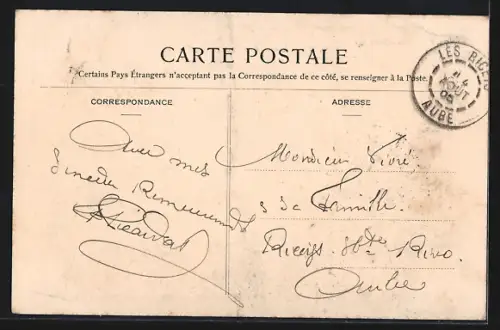 CARTE POSTALE
Certains Pays Étrangers n'acceptant pas la Correspondance de ce côté, se renseigner à la Poste.
CORRESPONDANCE
ADRESSE
LES RICEYS
AOUT
AUBE
Avec mes
Sincères Remerciements
Monsieur
& Sa Famille
Riceys Hte Rive
Aube